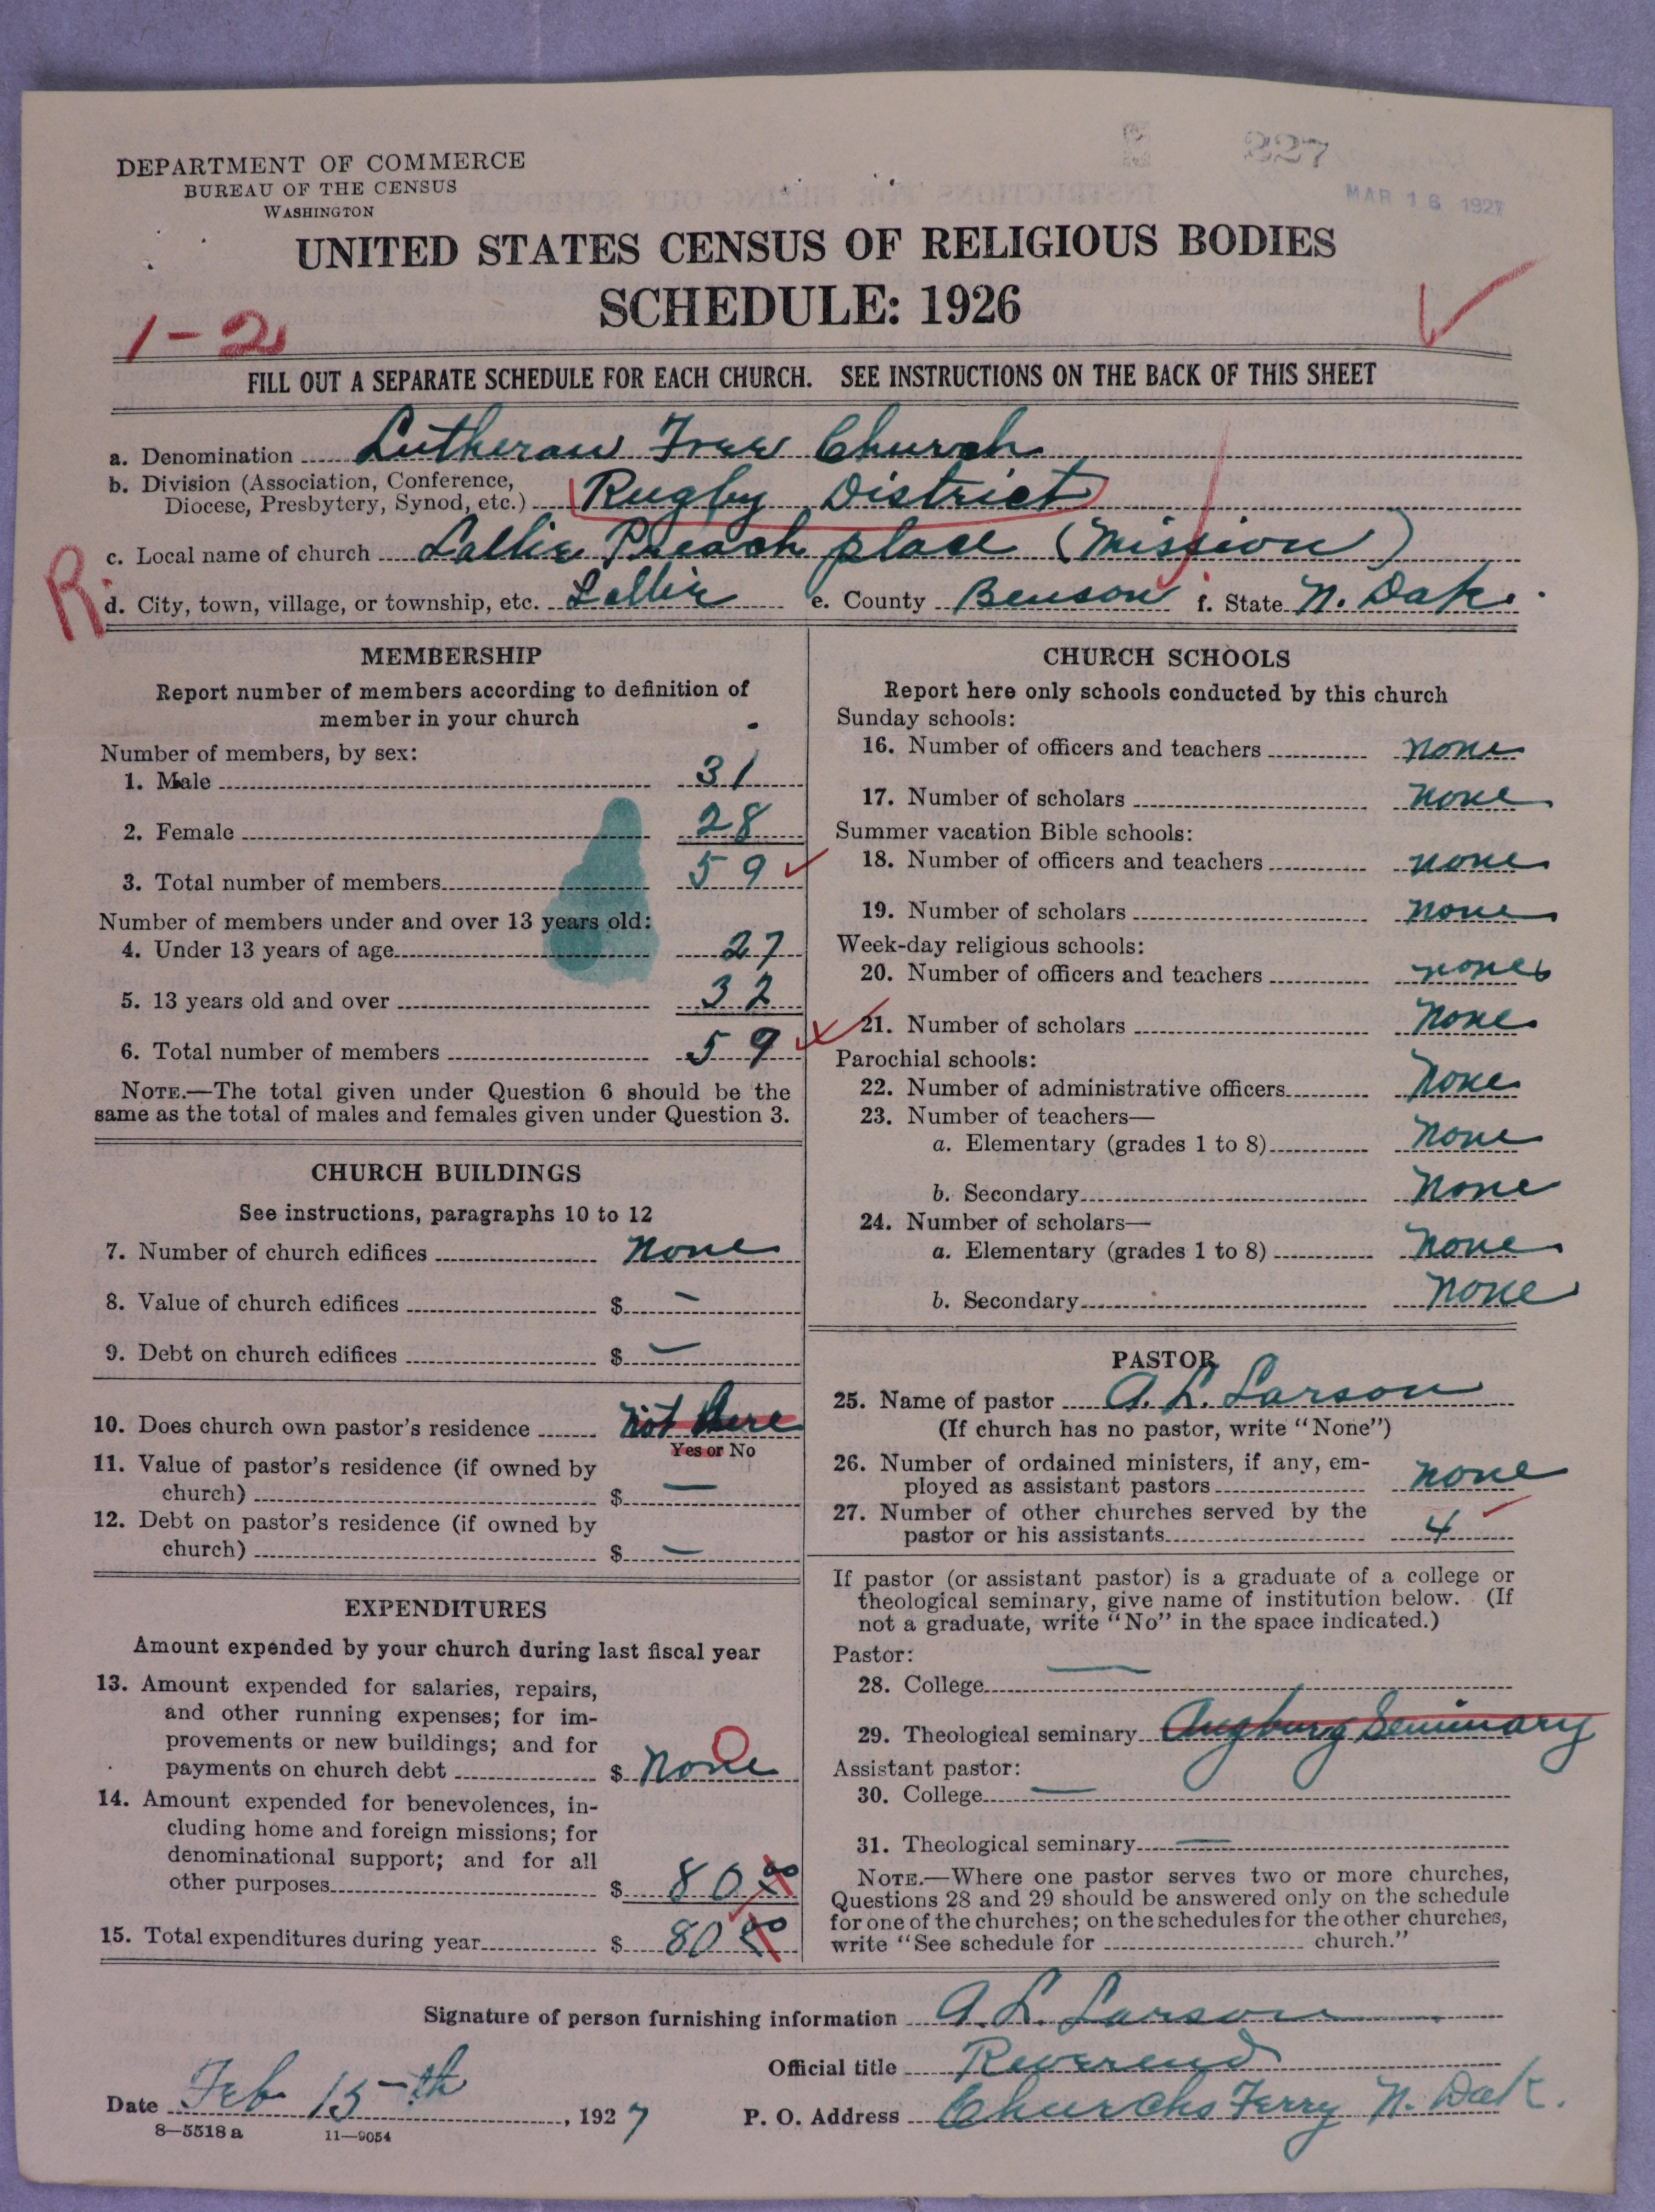 227
MAR 16 1927
DEPARTMENT OF COMMERCE
BUREAU OF THE CENSUS
WASHINGTON
UNITED STATES CENSUS OF RELIGIOUS BODIES
SCHEDULE: 1926
1-2
FILL OUT A SEPARATE SCHEDULE FOR EACH CHURCH. SEE INSTRUCTIONS ON THE BACK OF THIS SHEET
a. Denomination Lutheran Free Church
b. Division (Association, Conference,
Diocese, Presbytery, Synod, etc.) Rugby District
c. Local name of church Lallie Preach place (Mission)
R
d. City, town, village, or township, etc. Lallie e. County Benson f. State N. Dak.
MEMBERSHIP
Report number of members according to definition of
member in your church
Number of members, by sex:
1. Male 31
2. Female 28
3. Total number of members 59
Number of members under and over 13 years old:
4. Under 13 years of age 27
5. 13 years old and over 32
6. Total number of members 59
NOTE.—The total given under Question 6 should be the
same as the total of males and females given under Question 3.
CHURCH BUILDINGS
See instructions, paragraphs 10 to 12
7. Number of church edifices none
8. Value of church edifices $ —
9. Debt on church edifices $ —
10. Does church own pastor's residence not here
Yes or No
11. Value of pastor's residence (if owned by
church) $ —
12. Debt on pastor's residence (if owned by
church) $ —
EXPENDITURES
Amount expended by your church during last fiscal year
13. Amount expended for salaries, repairs,
and other running expenses; for im-
provements or new buildings; and for
payments on church debt $ none
14. Amount expended for benevolences, in-
cluding home and foreign missions; for
denominational support; and for all
other purposes $ 80
15. Total expenditures during year $ 80
CHURCH SCHOOLS
Report here only schools conducted by this church
Sunday schools:
16. Number of officers and teachers none
17. Number of scholars none
Summer vacation Bible schools:
18. Number of officers and teachers none
19. Number of scholars none
Week-day religious schools:
20. Number of officers and teachers none
21. Number of scholars none
Parochial schools:
22. Number of administrative officers none
23. Number of teachers—
a. Elementary (grades 1 to 8) none
b. Secondary none
24. Number of scholars—
a. Elementary (grades 1 to 8) none
b. Secondary none
PASTOR
25. Name of pastor A. L. Larson
(If church has no pastor, write "None")
26. Number of ordained ministers, if any, em-
ployed as assistant pastors none
27. Number of other churches served by the
pastor or his assistants 4
If pastor (or assistant pastor) is a graduate of a college or
theological seminary, give name of institution below. (If
not a graduate, write "No" in the space indicated.)
Pastor:
28. College —
29. Theological seminary Augburg Seminary
Assistant pastor:
30. College —
31. Theological seminary —
NOTE.—Where one pastor serves two or more churches,
Questions 28 and 29 should be answered only on the schedule
for one of the churches; on the schedules for the other churches,
write "See schedule for church."
Signature of person furnishing information A. L. Larson
Official title Reverend
Date Feb 15-th, 1927 P. O. Address Churchs Ferry N. Dak.
8—5518 a 11—9054